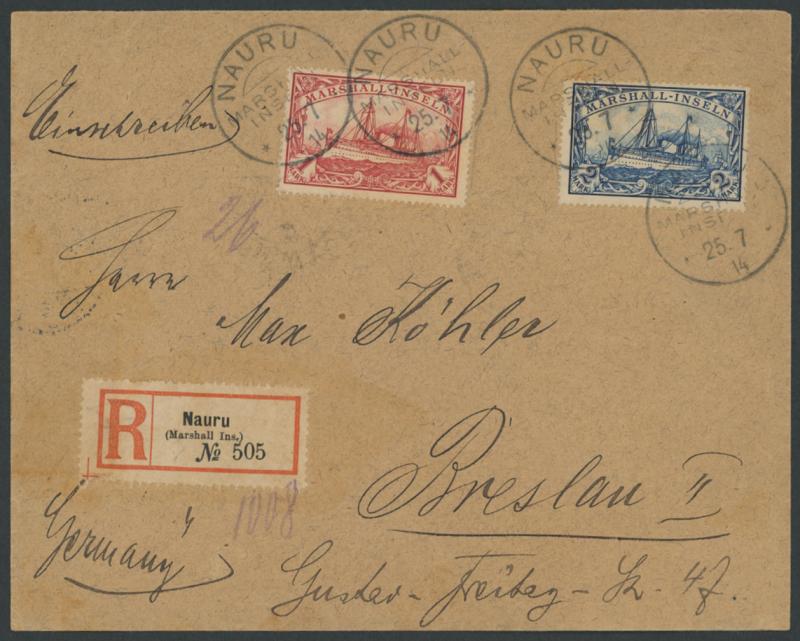 NAURU
MARSHALL-
INSELN
25.7
14
NAURU
MARSHALL-
25.7
14
NAURU
MARSHALL-
25.7
MARSHALL-INSELN
1 MARK
1 MARK
MARSHALL-INSELN
2 MARK
2 MARK
MARSH
INSE
25.7
14
Einschreiben
26
Herrn
Max Köhler
R
Nauru
(Marshall Ins.)
№ 505
Breslau II
1008
Germany
Gustav-Freitag-Str. 47.